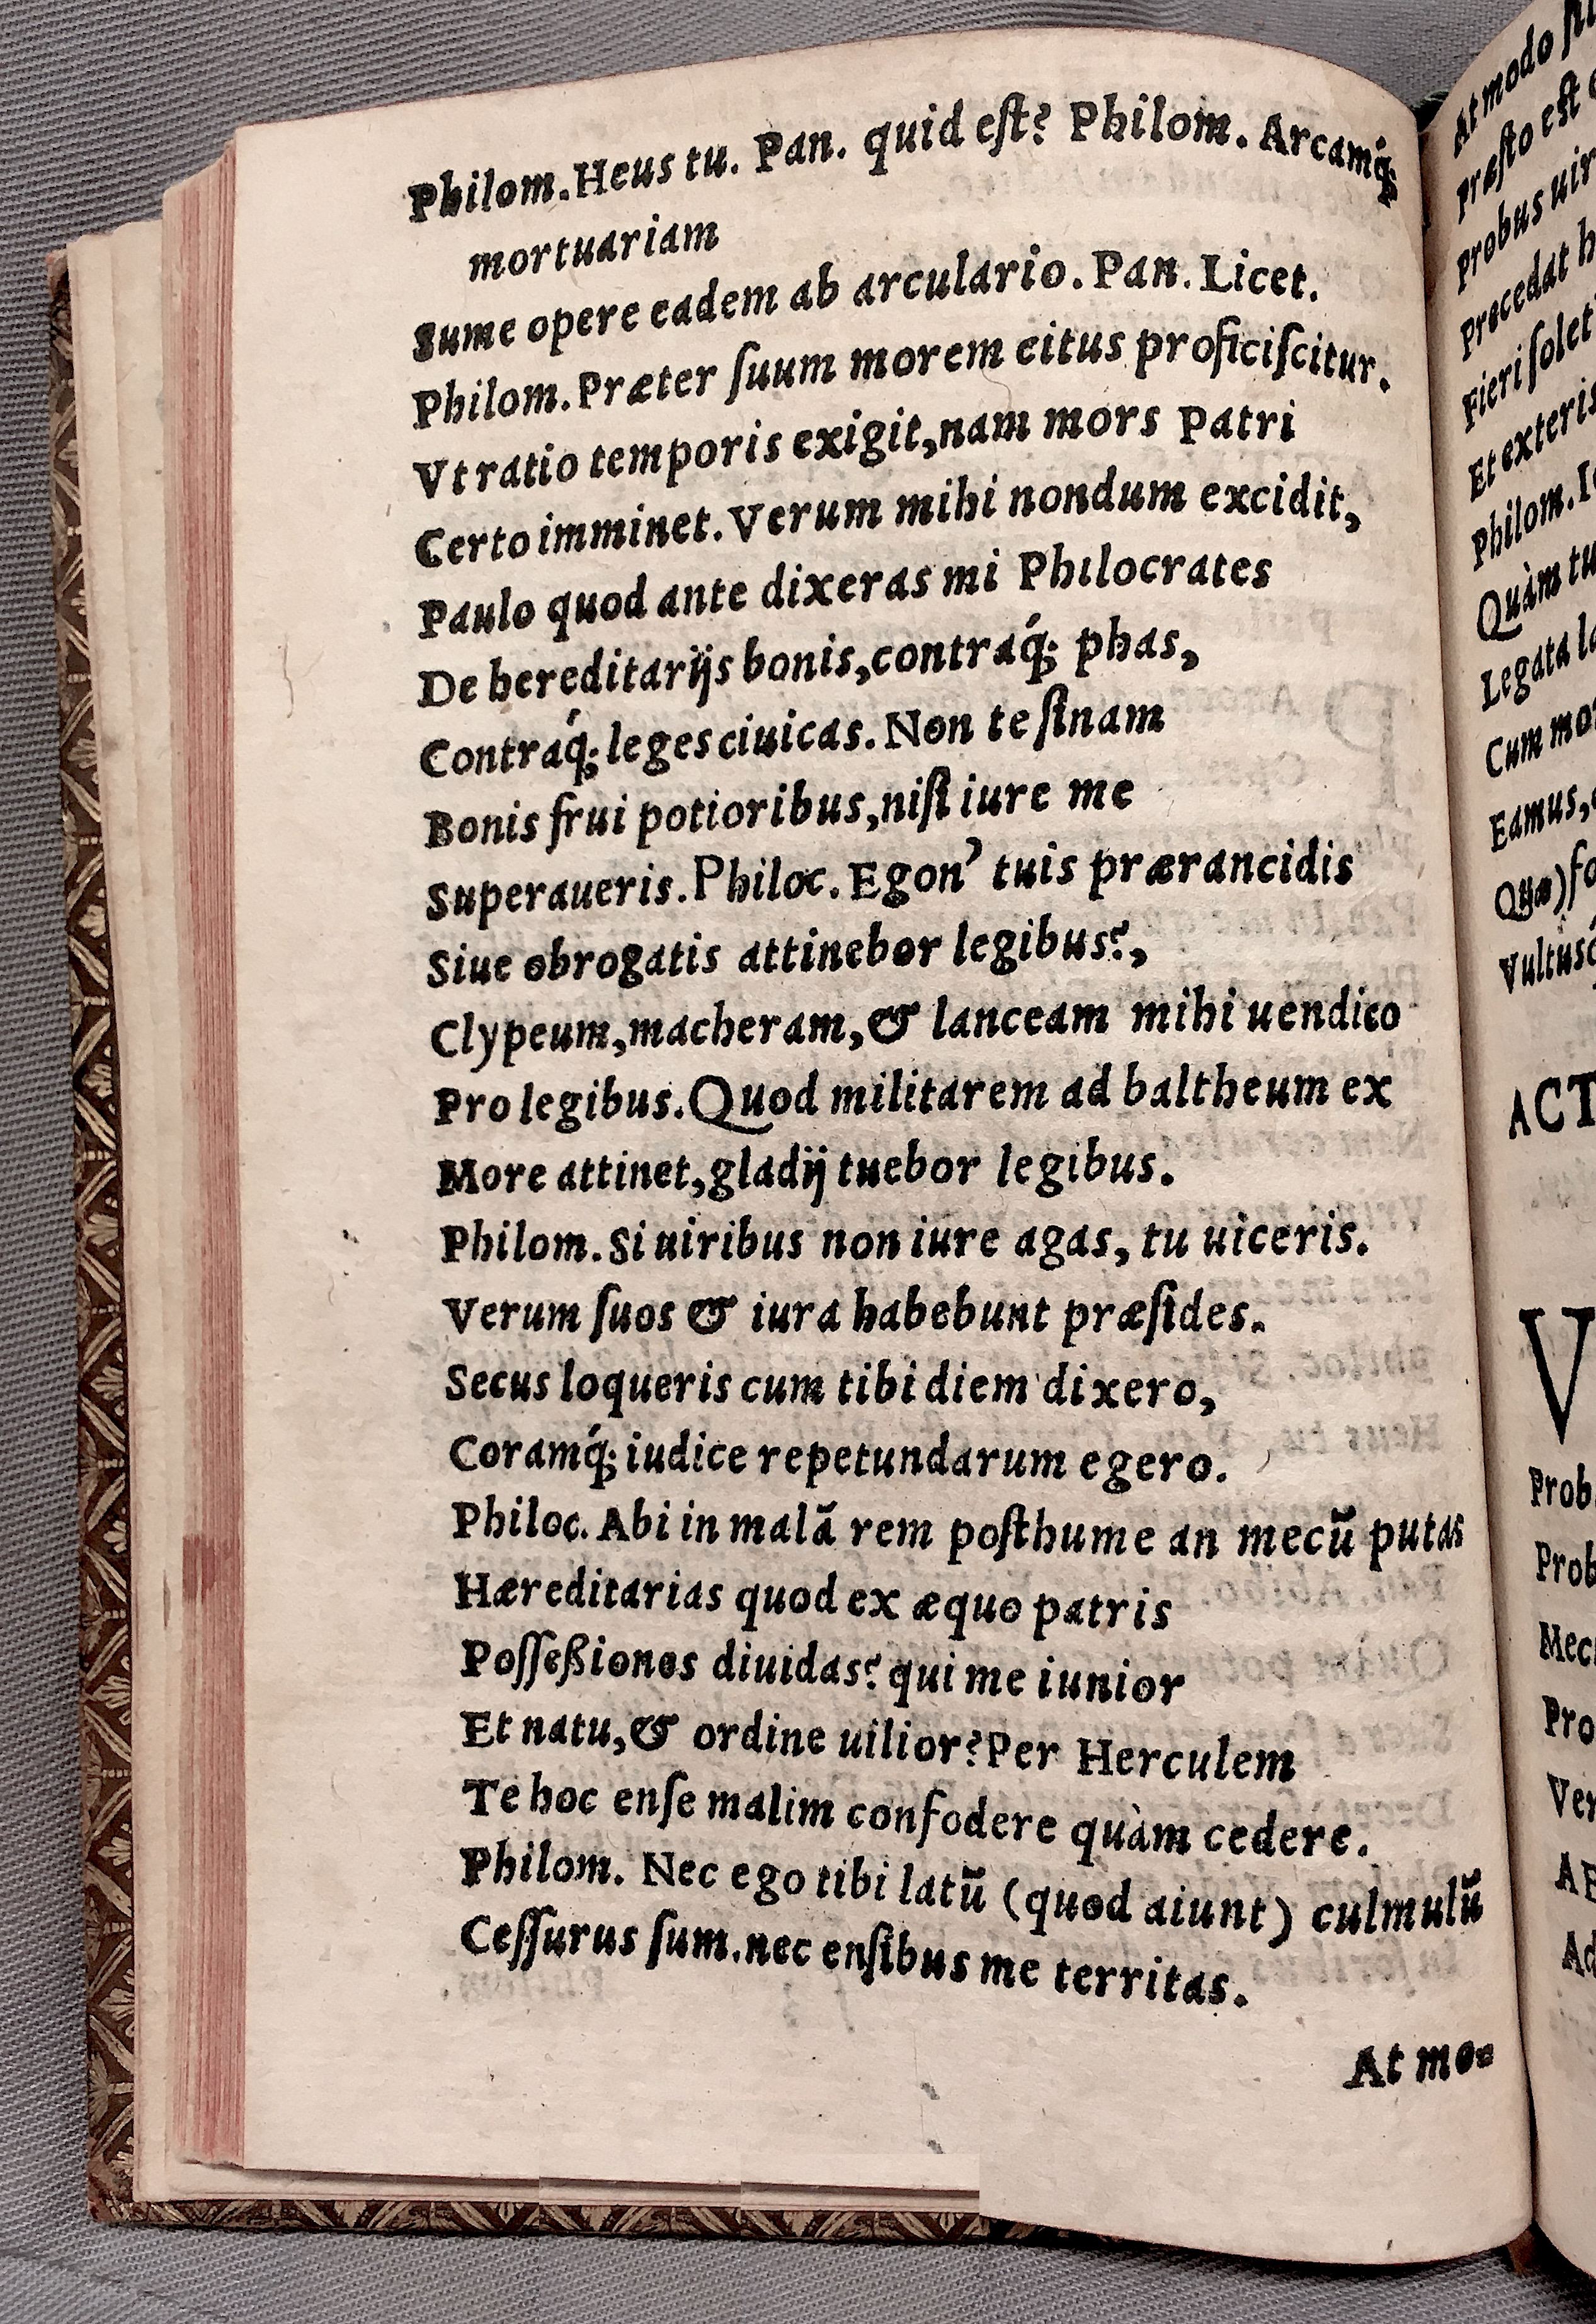 Philom. Heus tu. Pan. quid eſt? Philom. Arcamq́;
mortuariam
Sume opere eadem ab arculario. Pan. Licet.
Philom. Præter ſuum morem citus proficiſcitur.
Vt ratio temporis exigit, nam mors patri
Certo imminet. Verum mihi nondum excidit,
Paulo quod ante dixeras mi Philocrates
De hereditarijs bonis, contraq́; phas,
Contraq́; leges ciuicas. Non te ſinam
Bonis frui potioribus, niſi iure me
Superaueris. Philoc. Egon' tuis prærancidis
Siue obrogatis attinebor legibus?,
Clypeum, macheram, & lanceam mihi uendico
Pro legibus. Quod militarem ad baltheum ex
More attinet, gladij tuebor legibus.
Philom. Si uiribus non iure agas, tu uiceris.
Verum ſuos & iura habebunt præſides.
Secus loqueris cum tibi diem dixero,
Coramq́; iudice repetundarum egero.
Philoc. Abi in malã rem poſthume an mecũ putas
Hæreditarias quod ex æquo patris
Poſſeßiones diuidas? qui me iunior
Et natu, & ordine uilior? Per Herculem
Te hoc enſe malim confodere quàm cedere.
Philom. Nec ego tibi latũ (quod aiunt) culmulũ
Ceſſurus ſum. nec enſibus me territas.
At mo-
At modo
Præſto eſt
Probus uir
Præcedat
Fieri ſolet
Et exteris
Philom.
Quàm tu
Legata
Cum
Eamus,
Quæ)
ACT
V
Prob
Prob
Pro
Ver